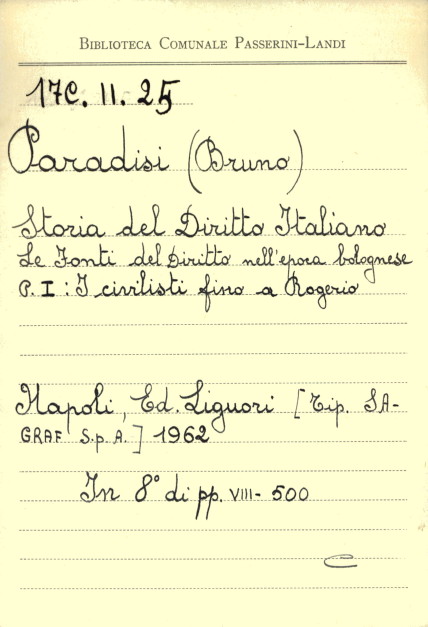 BIBLIOTECA COMUNALE PASSERINI-LANDI
17C. II. 25
Paradisi (Bruno)
Storia del Diritto Italiano
Le Fonti del Diritto nell'epoca bolognese
P. I : I civilisti fino a Rogerio
Napoli, Ed. Liguori [Tip. SA-
GRAF S.p.A.] 1962
In 8° di pp. VIII- 500
C